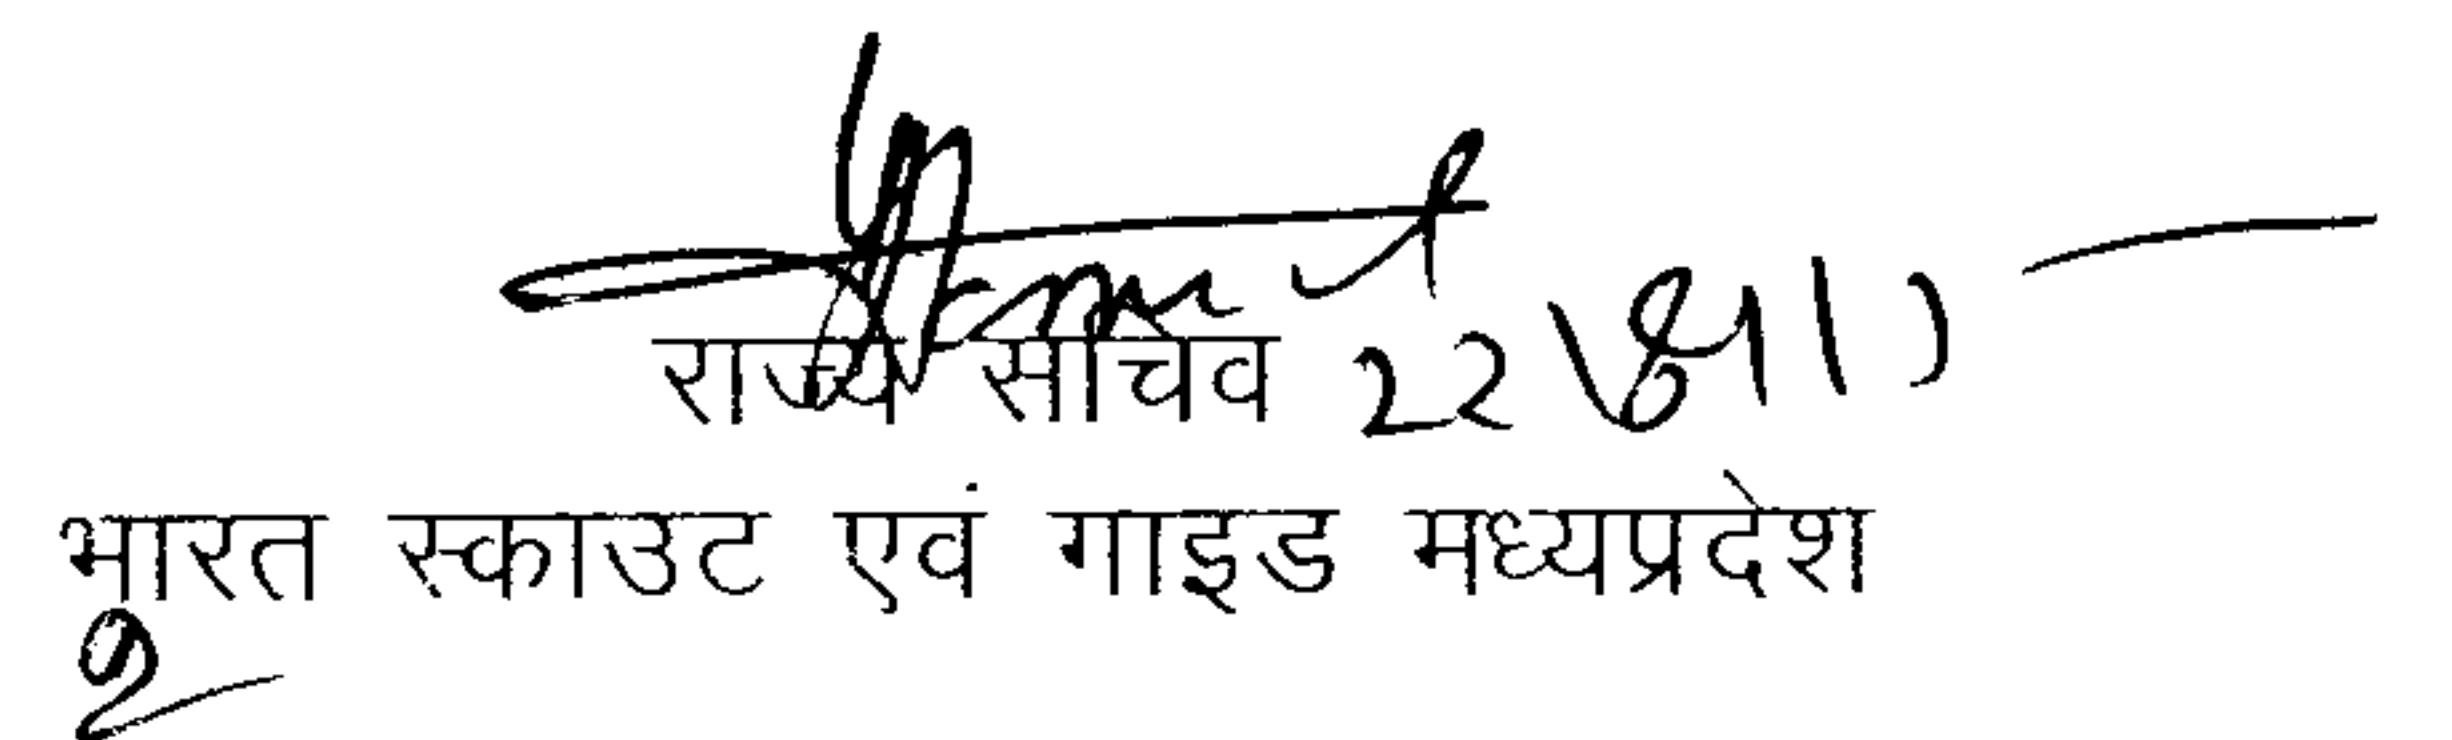 राज्य सचिव 22
भारत स्काउट एवं गाइड मध्यप्रदेश